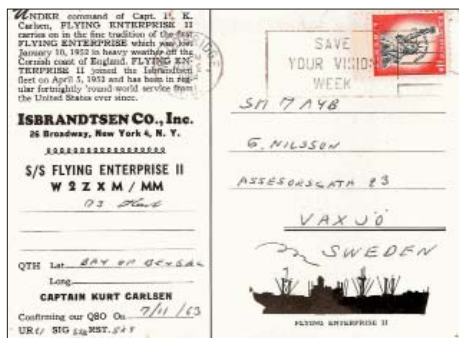 UNDER command of Capt. P. K.
Carlsen, FLYING ENTERPRISE II
carries on in the fine tradition of the first
FLYING ENTERPRISE which was lost
January 10, 1952 in heavy weather off the
Cornish coast of England. FLYING EN-
TERPRISE II joined the Isbrandtsen
fleet on April 5, 1952 and has been in reg-
ular fortnightly 'round-world service from
the United States ever since.
ISBRANDTSEN CO., Inc.
26 Broadway, New York 4, N. Y.
S/S FLYING ENTERPRISE II
W 2 Z X M / MM
73 Kurt
QTH Lat. BAY OF
Long.
CAPTAIN KURT CARLSEN
Confirming our QSO On 7/11/63
UR SIG RST.
SAVE
YOUR VISION
WEEK
SM 7 AYB
G. NILSSON
ASSESORSGATA 23
VAXJÖ
SWEDEN
FLYING ENTERPRISE II